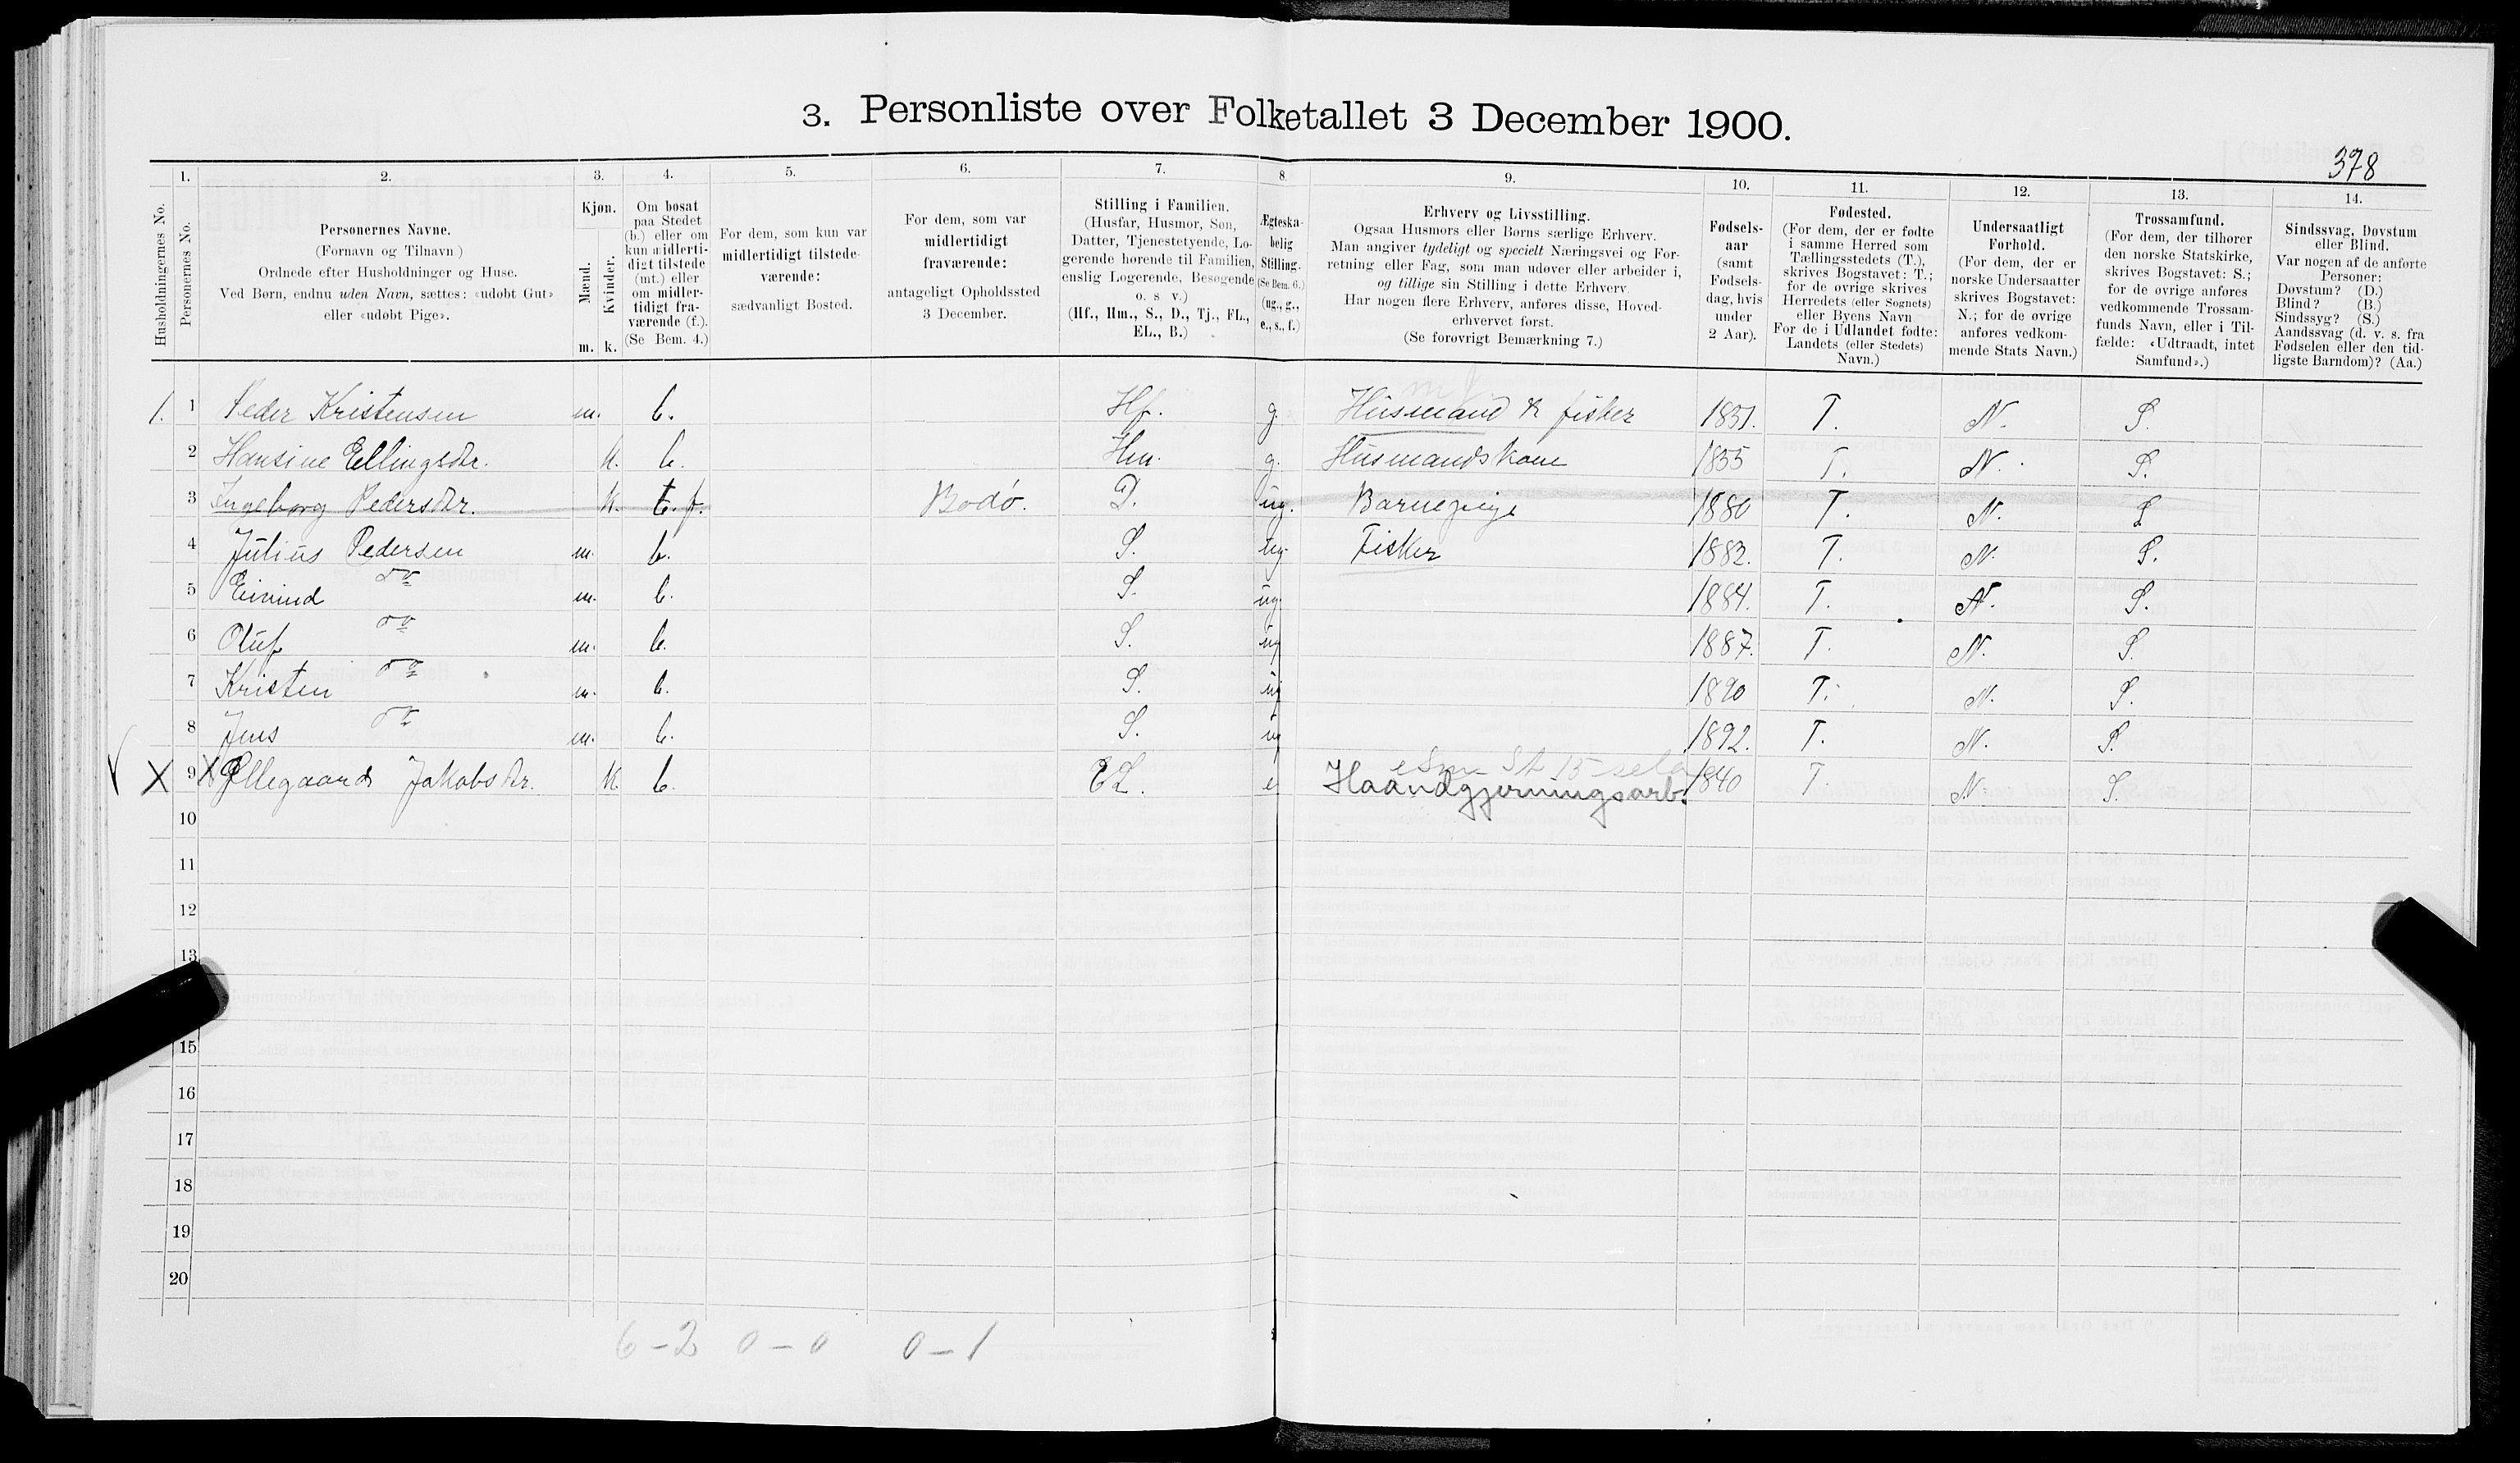 3. Personliste over Folketallet 3 December 1900.
378
1. 2. 3. 4. 5. 6. 7. 8. 9. 10. 11. 12. 13. 14.
Husholdningernes No.
Personernes No.
Personernes Navne.
(Fornavn og Tilnavn)
Ordnede efter Husholdninger og Huse.
Ved Børn, endnu uden Navn, sættes: «udøbt Gut»
eller «udøbt Pige».
Kjøn.
Mænd.
Kvinder.
m. k.
Om bosat
paa Stedet
(b.) eller om
kun midlerti-
digt tilstede
(mt.) eller
om midler-
tidigt fra-
værende (f.).
(Se Bem. 4.)
For dem, som kun var
midlertidigt tilstede-
værende:
sædvanligt Bosted.
For dem, som var
midlertidigt
fraværende:
antageligt Opholdssted
3 December.
Stilling i Familien.
(Husfar, Husmor, Søn,
Datter, Tjenestetyende, Lo-
gerende hørende til Familien,
enslig Logerende, Besøgende
o. s v.)
(Hf., Hm., S., D., Tj., FL.,
EL., B.)
Ægteska-
belig
Stilling.
(Se Bem. 6.)
(ug., g.,
e., s., f.)
Erhverv og Livsstilling.
Ogsaa Husmors eller Børns særlige Erhverv.
Man angiver tydeligt og specielt Næringsvei og For-
retning eller Fag, som man udøver eller arbeider i,
og tillige sin Stilling i dette Erhverv.
Har nogen flere Erhverv, anføres disse, Hoved-
erhvervet først.
(Se forøvrigt Bemærkning 7.)
Fødsels-
aar
(samt
Fødsels-
dag, hvis
under
2 Aar).
Fødested.
(For dem, der er fødte
i samme Herred som
Tællingsstedets (T.),
skrives Bogstavet: T.;
for de øvrige skrives
Herredets (eller Sognets)
eller Byens Navn
For de i Udlandet fødte:
Landets (eller Stedets)
Navn.)
Undersaatligt
Forhold.
(For dem, der er
norske Undersaatter
skrives Bogstavet:
N.; for de øvrige
anføres vedkom-
mende Stats Navn.)
Trossamfund.
(For dem, der tilhører
den norske Statskirke,
skrives Bogstavet: S.;
for de øvrige anføres
vedkommende Trossam-
funds Navn, eller i Til-
fælde: «Udtraadt, intet
Samfund».)
Sindssvag, Døvstum
eller Blind.
Var nogen af de anførte
Personer:
Døvstum? (D.)
Blind? (B.)
Sindssyg? (S.)
Aandssvag (d. v. s. fra
Fødselen eller den tid-
ligste Barndom)? (Aa.)
1. 1 Peder Kristensen m. b. Hf. g. Husmand & fisker 1851. T. N. S.
2 Hansine Ellingsdr. k. b. Hm. g. Husmandskone 1855 T. N. S.
3 Ingeborg Pedersdr. k. b. f. Bodø. D. ug. Barnepige 1880 T. N. S
4 Julius Pedersen m. b. S. ug. Fisker 1882. T. N. S.
5 Eivind do m. b. S. ug. 1884. T. N. S.
6 Oluf do m. b. S. ug 1887. T. N. S.
7 Kristen do m. b. S. ug 1890 T. N. S.
8 Jens do m. b. S. ug 1892. T. N. S.
X 9 X Ellegaard Jakobsdr. k. b. EL. e Haandgjerningsarb. 1840 T. N. S.
10
11
12
13
15
16
17
18
19
20
6 - 2 0 - 0 0 - 1